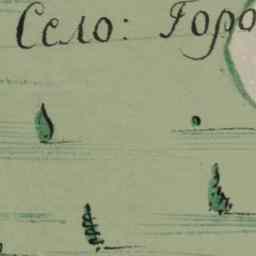 Село: Горо